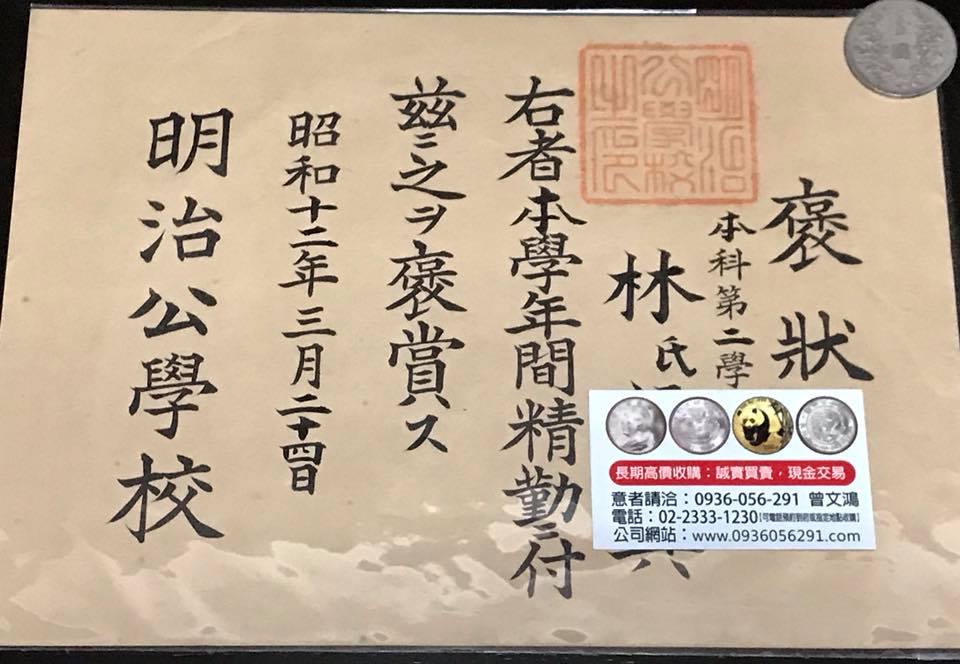 褒狀
本科第二學
林氏
右者本學年間精勤ニ付
茲ニ之ヲ褒賞ス
昭和十二年三月二十四日
明治公學校
明治
公學校
之印
長期高價收購：誠實買賣，現金交易
意者請洽：0936-056-291 曾文鴻
電話：02-2333-1230【可電話預約到府或指定地點收購】
公司網站：www.0936056291.com